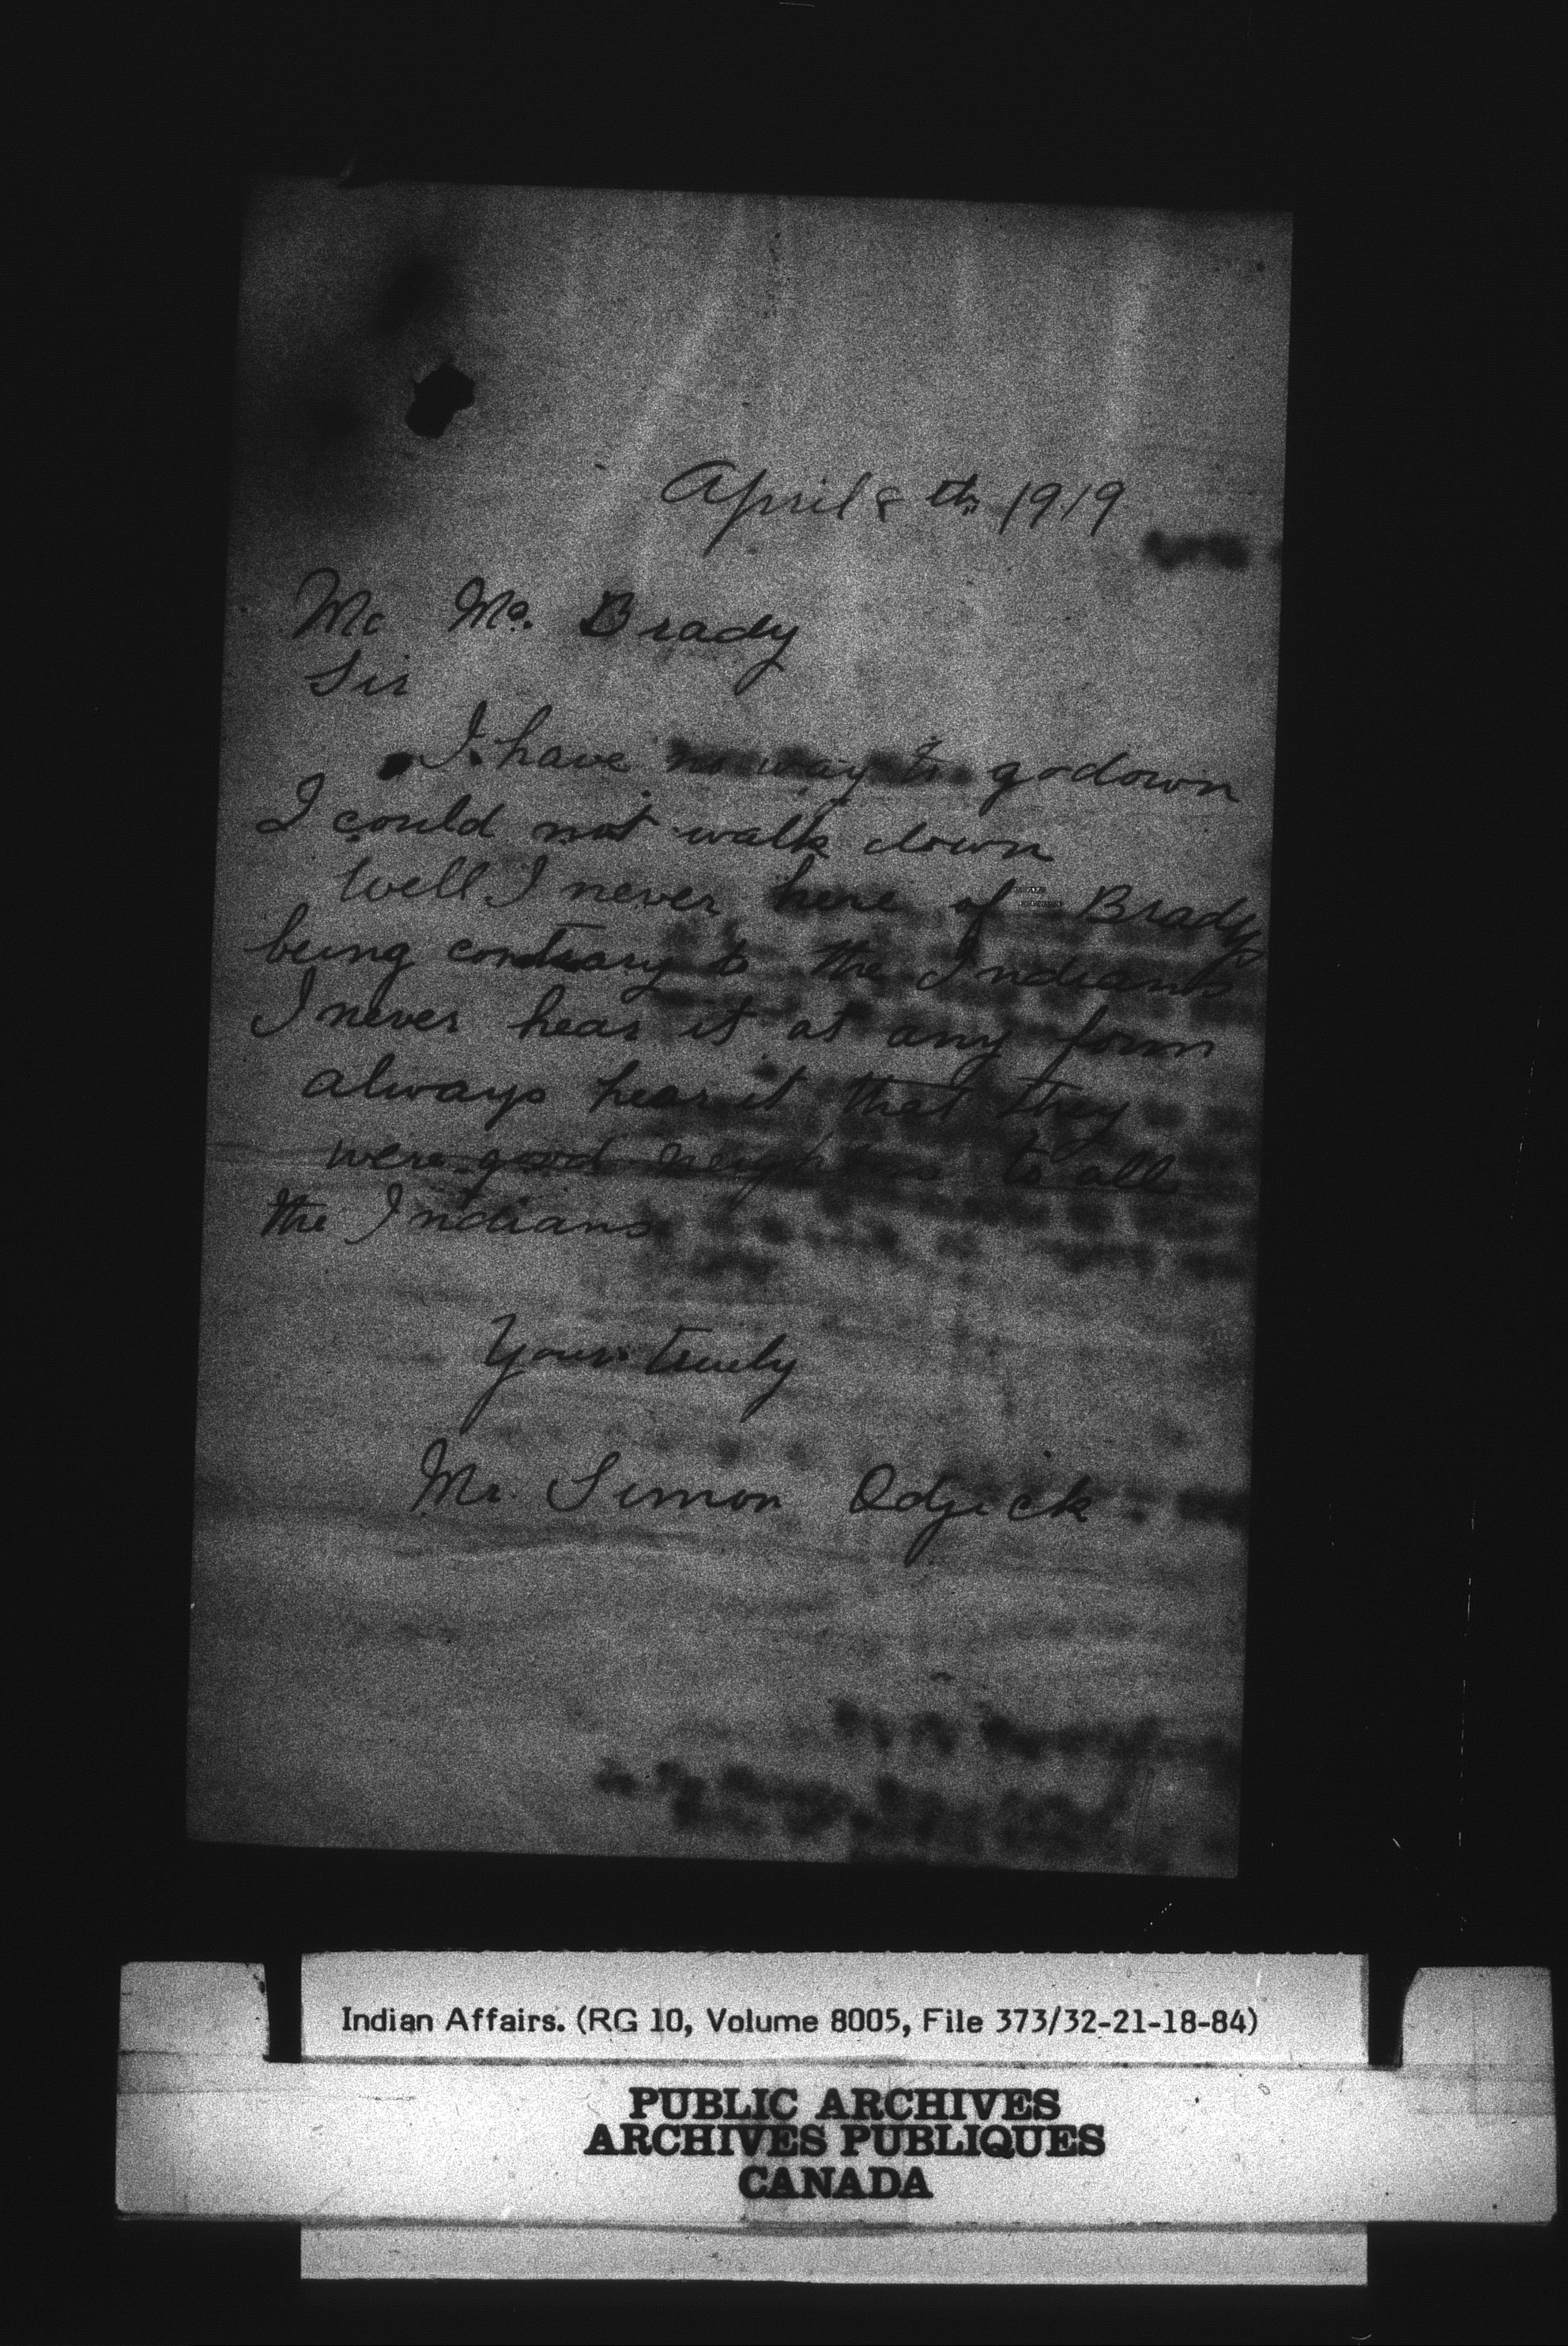 April 8th 1919
Mc Mc. Brady
Sir
I have no way to go down
I could not walk down
Well I never here of Bradys
being contrary to the Indians
I never hear it at any form
always hear it that they
were good neighbors to all
the Indians
Yours truely
Mr. Simon Odjick
Indian Affairs. (RG 10, Volume 8005, File 373/32-21-18-84)
PUBLIC ARCHIVES
ARCHIVES PUBLIQUES
CANADA